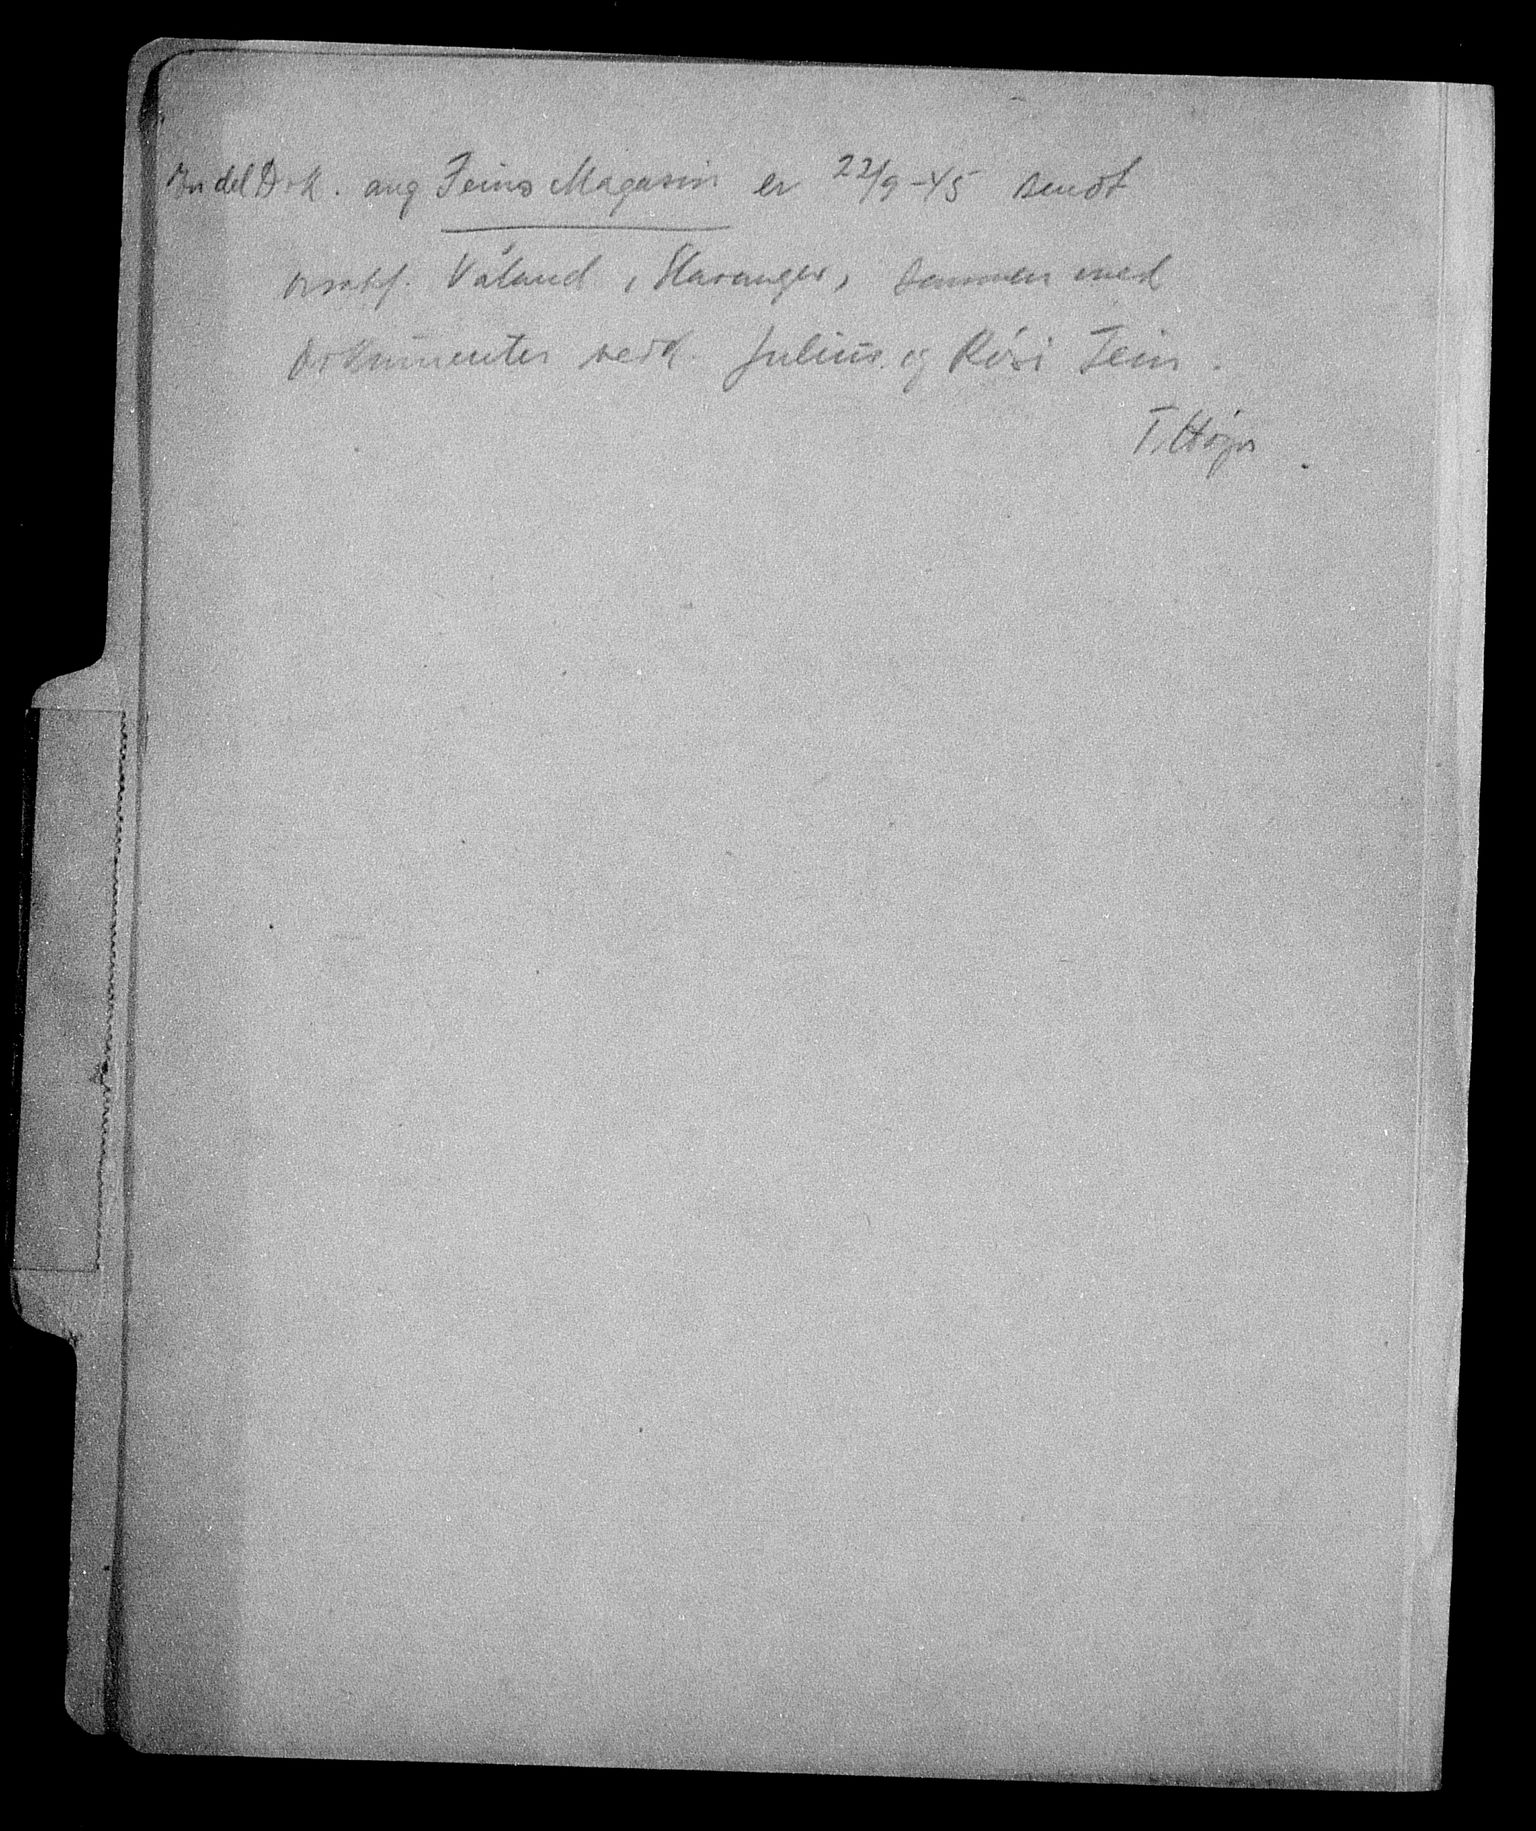 En del Dok. ang Feins Magasin er 22/9-45 sendt
orsakf. Våland, Stavanger, sammen med
Dokumenter vedk. Julius og Rosi Fein.
T. Høyer